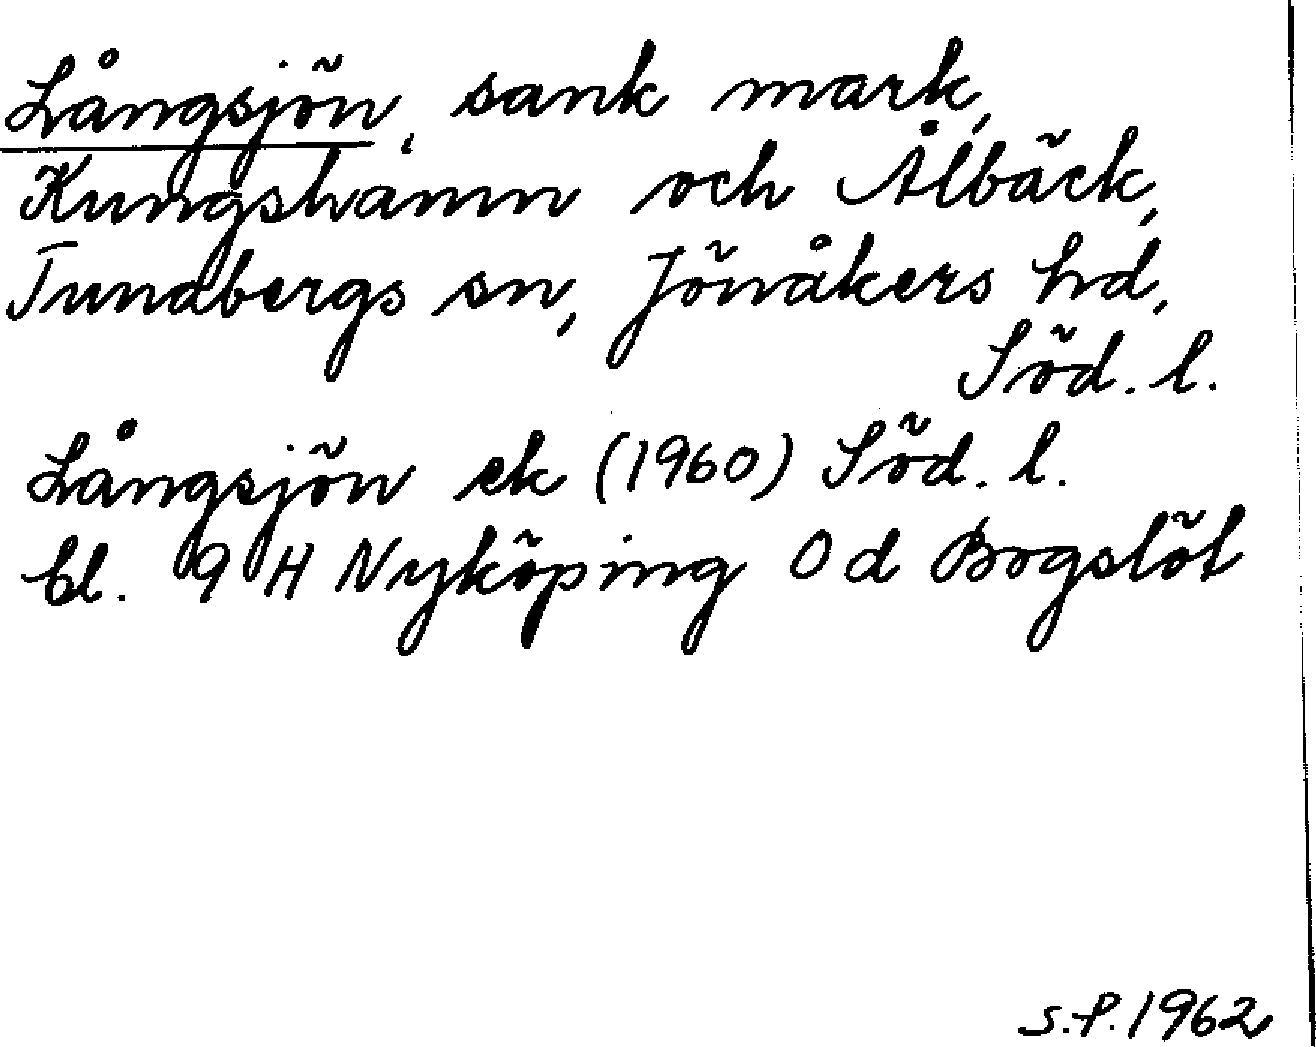 Långsjön, sank mark,
Kungshamn och Ålbäck,
Tunabergs sn, Jönåkers hd,
Söd. l.
Långsjön ek (1960) Söd. l.
bl. 9 H Nyköping 0 d Bogslöt
S.P. 1962